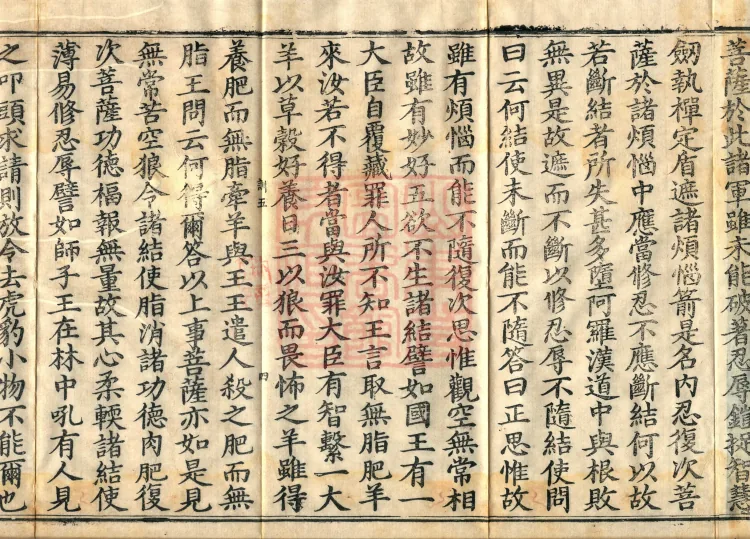 菩薩於此諸軍雖未能破著忍辱鎧捉智慧
劒執禪定盾遮諸煩惱箭是名內忍復次菩
薩於諸煩惱中應當修忍不應斷結何以故
若斷結者所失甚多墮阿羅漢道中與根敗
無異是故遮而不斷以修忍辱不隨結使問
曰云何結使未斷而能不隨答曰正思惟故
雖有煩惱而能不隨復次思惟觀空無常相
故雖有妙好五欲不生諸結譬如國王有一
大臣自覆藏罪人所不知王言取無脂肥羊
來汝若不得者當與汝罪大臣有智繫一大
羊以草穀好養日三以狼而畏怖之羊雖得
養肥而無脂牽羊與王王遣人殺之肥而無
脂王問云何得爾答以上事菩薩亦如是見
無常苦空狼令諸結使脂消諸功德肉肥復
次菩薩功德福報無量故其心柔輭諸結使
薄易修忍辱譬如師子王在林中吼有人見
之叩頭求請則放令去虎豹小物不能爾也